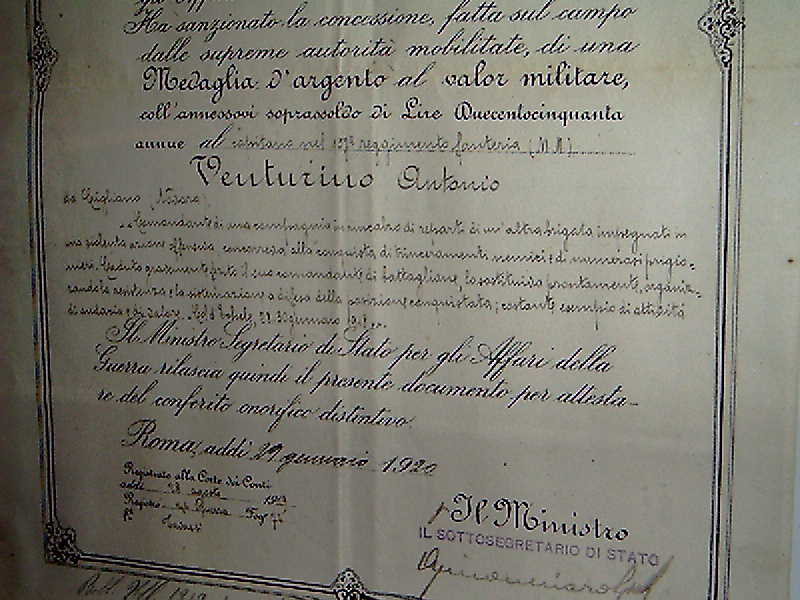 Ha sanzionato la concessione, fatta sul campo
dalle supreme autorità mobilitate, di una
Medaglia d'argento al valor militare,
coll'annessovi soprassoldo di Lire Duecentocinquanta
annue al capitano nel 157º reggimento fanteria (M.M.)
Venturino Antonio
da Cigliano (Novara)
Comandante di una compagnia in rincalzo di reparti di un'altra brigata impegnati in
una violenta azione offensiva, concorreva alla conquista di trinceramenti nemici e di numerosi prigio-
nieri. Caduto gravemente ferito il suo comandante di battaglione, lo sostituiva prontamente, organiz-
zando la resistenza e la sistemazione a difesa della posizione conquistata; costante esempio di attività
di audacia e di valore. Col d'Echele, 28-30 gennaio 1918
Il Ministro Segretario di Stato per gli Affari della
Guerra rilascia quindi il presente documento per attesta-
re del conferito onorifico distintivo.
Roma, addì 29 gennaio 1920
Registrato alla Corte dei Conti
addì 28 agosto 19
Registro Guerra Fog.
Il Ministro
IL SOTTOSEGRETARIO DI STATO